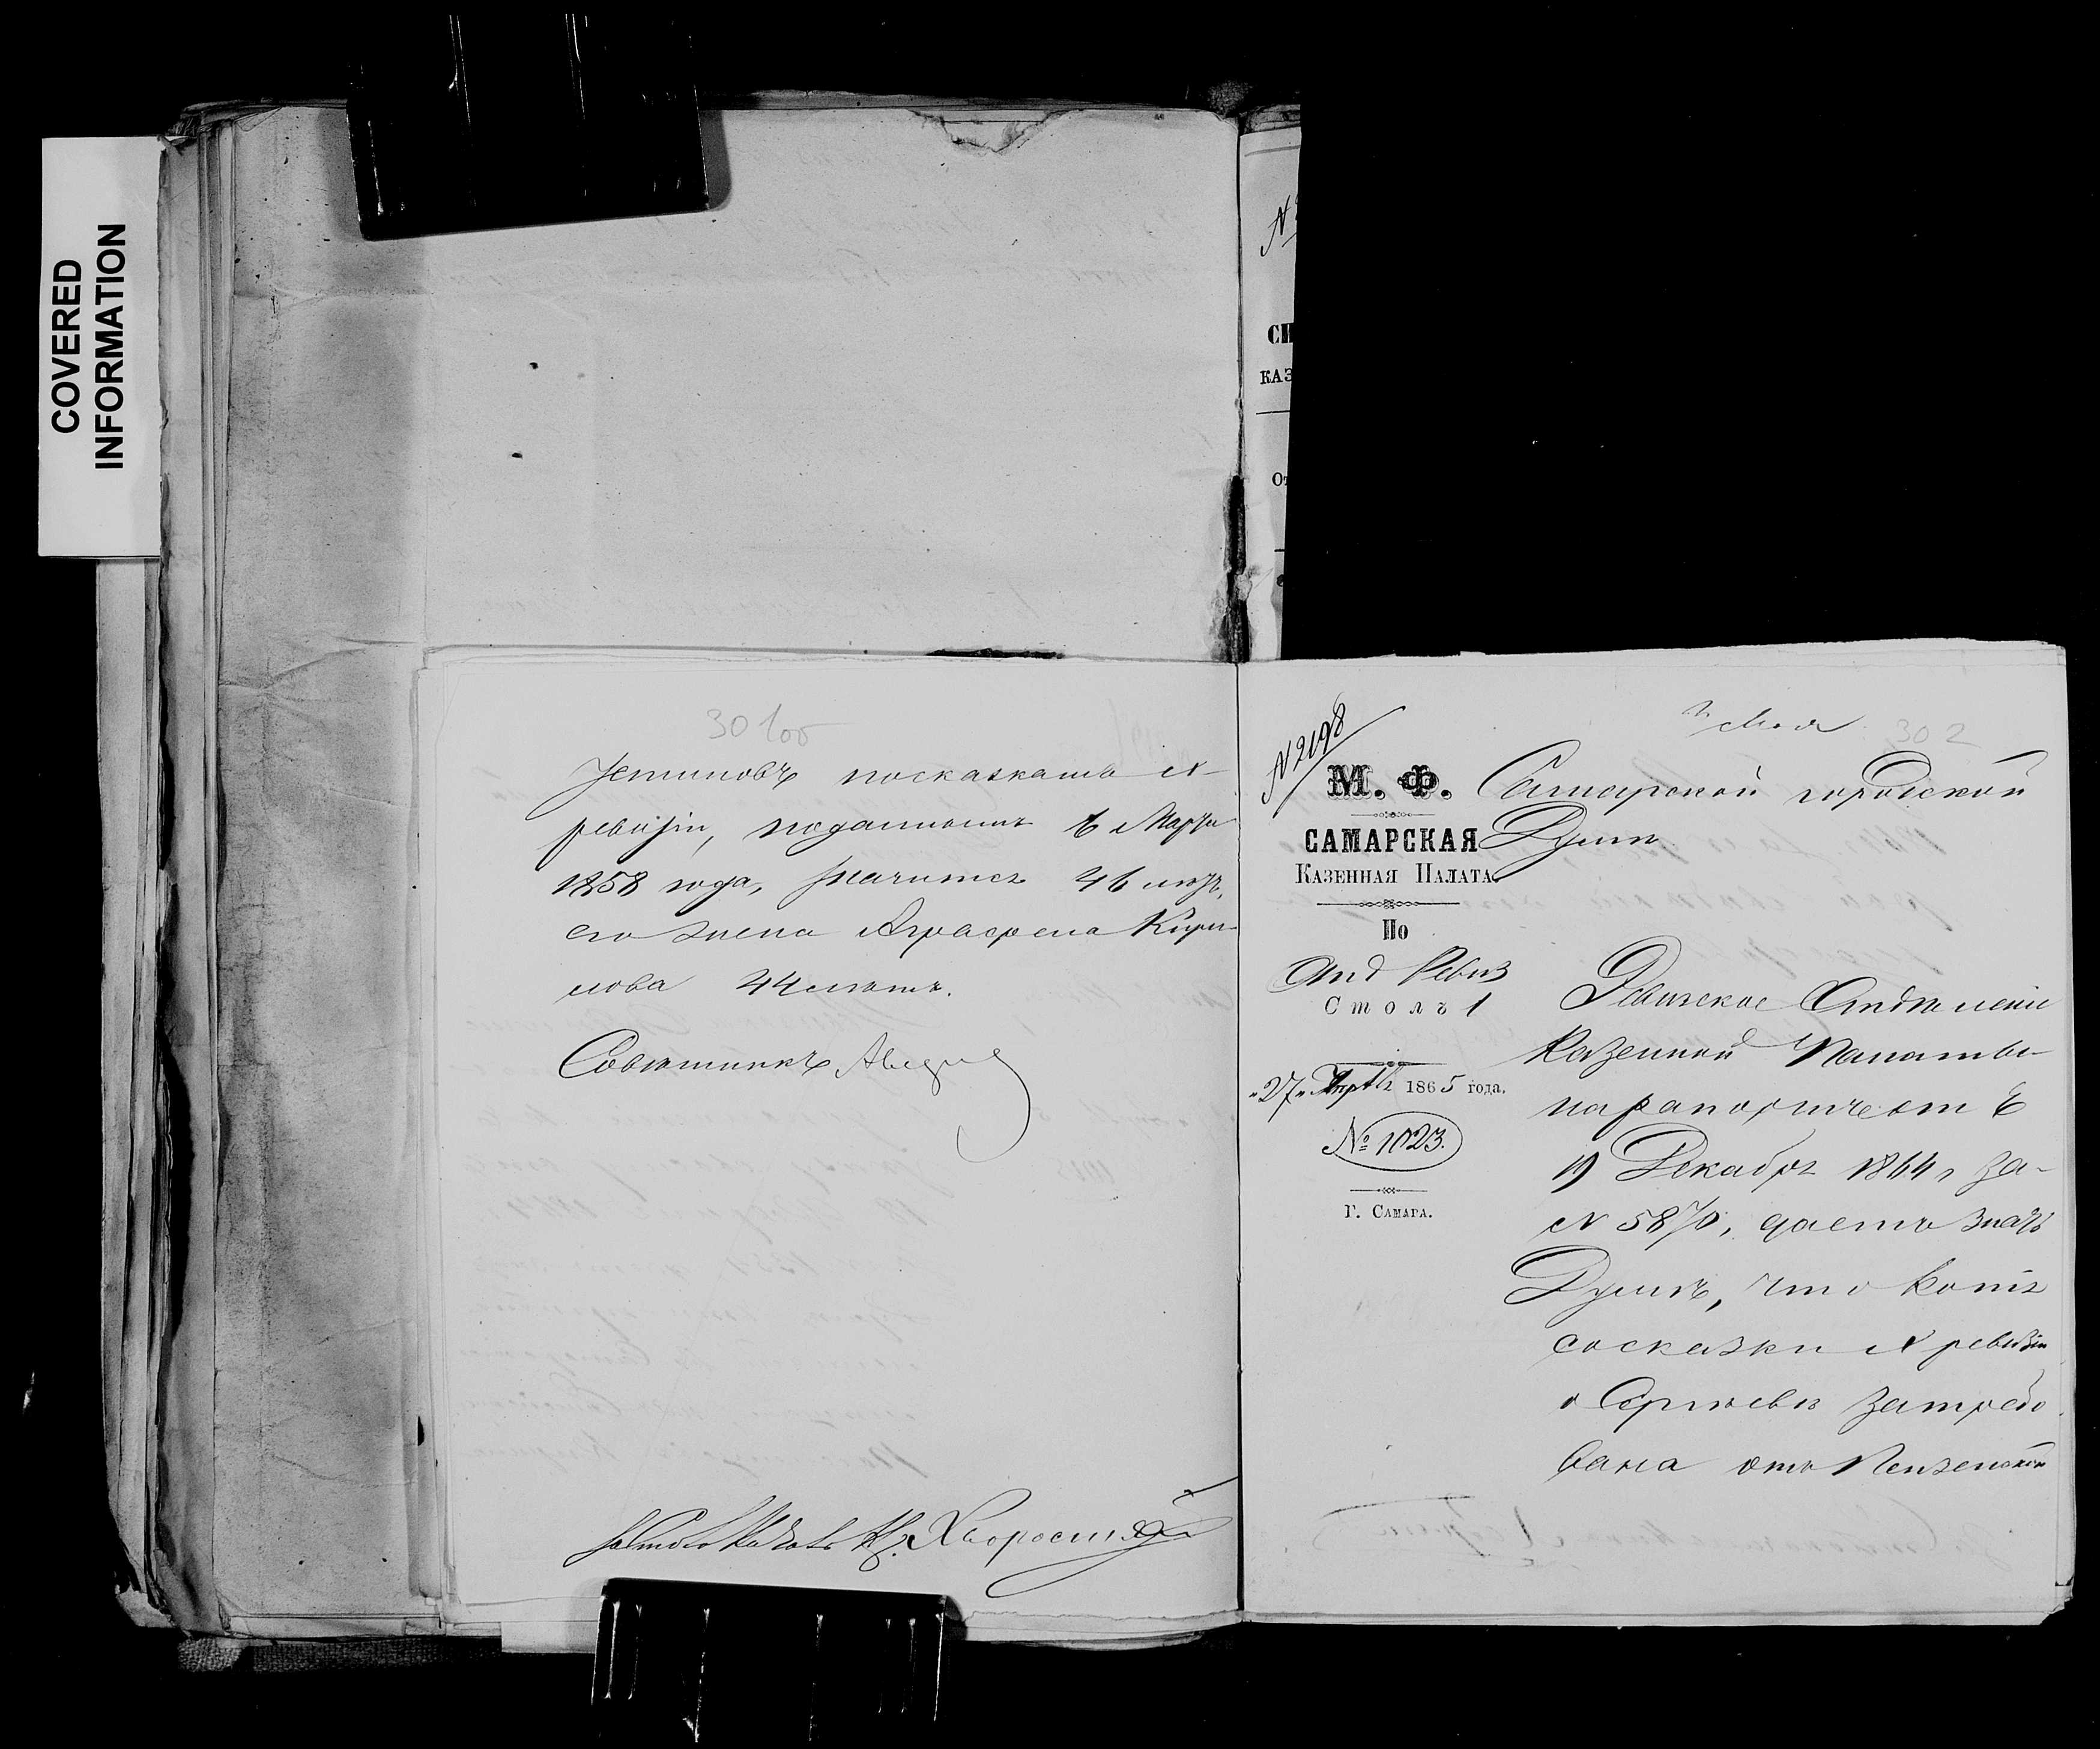 COVERED
INFORMATION
301об
Устиновъ посказкамъ X
ревизіи, поданнымъ 6 Марта
1858 года, значится 46 лѣтъ,
его жена Аграфена Кири-
лова 44 лѣтъ.
Совѣтникъ
Хворостин
СИ
КАЗ
От
N 2198
Мая
302
М. Ф.
САМАРСКАЯ
КАЗЕННАЯ ПАЛАТА.
По
Отд Ревиз
Столъ 1
"27" Апрѣля 1865 года.
№ 1023.
Г. САМАРА.
Самарской городской
Думѣ
Ревизское Отдѣленіе
Казенной Палаты
на рапортъ отъ
19 Декабря 1864 г за
N 5870, даетъ знать
Думѣ, что копія
со сказки X ревизіи
о Сергѣевѣ затребо
вана отъ Пензенской